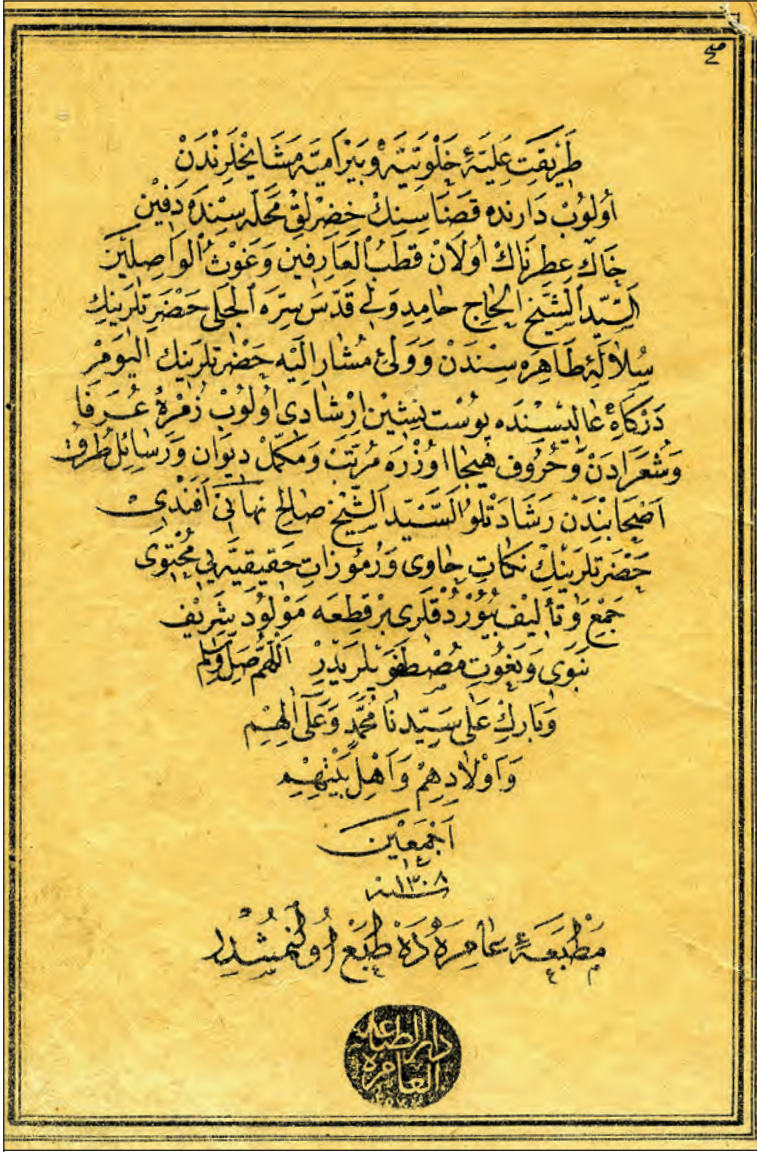 طَرِيقَتِ عَلِيَّهٔ خَلْوَتِيَّه وَبَيْرَامِيَّه مَشَايِخْلَرِنْدَنْ
اُولُوبْ دَارَنْدَه قَضَاسِنِكْ خِضِرْلِقْ مَحَلَّه سِنْدَه دَفِينِ
خَاكِ عِطِرْنَاكْ اُولَانْ قُطْبُ الْعَارِفِينْ وَغَوْثُ الْوَاصِلِينْ
اَلسَّيِّدْ اَلشَّيْخْ اَلْحَاجْ حَامِدِ وَلِي قَدَّسَ سِرَّهُ الْجَلِي حَضْرَتْلَرِينِكْ
سُلَالَهٔ طَاهِرَه سِنْدَنْ وَوَلِئ مُشَارٌ اِلَيْه حَضْرَتْلَرِينِكْ اَلْيَوْمْ
دَرْكَاهِ عَالِيسِنْدَه پُوسْت نِشِينِ اِرْشَادِى اُولُوبْ زُمْرَهٔ عُرَفَا
وَشُعَرَادَنْ وَحُرُوفِ هِجَا اوُزْرَه مُرَتَّبْ وَمُكَمَّلْ دِيوَان وَرَسَائِلِ طُرُقْ
اَصْحَابِنْدَنْ رَشَادَتْلُو اَلسَّيِّدْ اَلشَّيْخْ صَالِحْ نِهَانِى اَفَنْدِى
حَضْرَتْلَرِينِكْ نِكَاتِ حَاوِى وَرُمُوزَاتِ حَقِيقِيَّه يِى مُحْتَوِى
جَمْعْ وَتَأْلِيفْ بُيُورْدُقْلَرِى بِرْ قِطْعَه مَوْلُودِ شَرِيفِ
نَبَوِى وَنُعُوتِ مُصْطَفَوِيلَرِيدِرْ اَللّٰهُمَّ صَلِّ وَسَلِّمْ
وَبَارِكْ عَلَى سَيِّدِنَا مُحَمَّدٍ وَعَلَى اٰلِهِمْ
وَاَوْلَادِهِمْ وَاَهْلِ بَيْتِهِمْ
اَجْمَعِينَ
سنه ١٣٠٨
مَطْبَعَهٔ عَامِرَه دَه طَبْعْ اُولُنْمُشْدِرْ
دار الطباعه
العامره